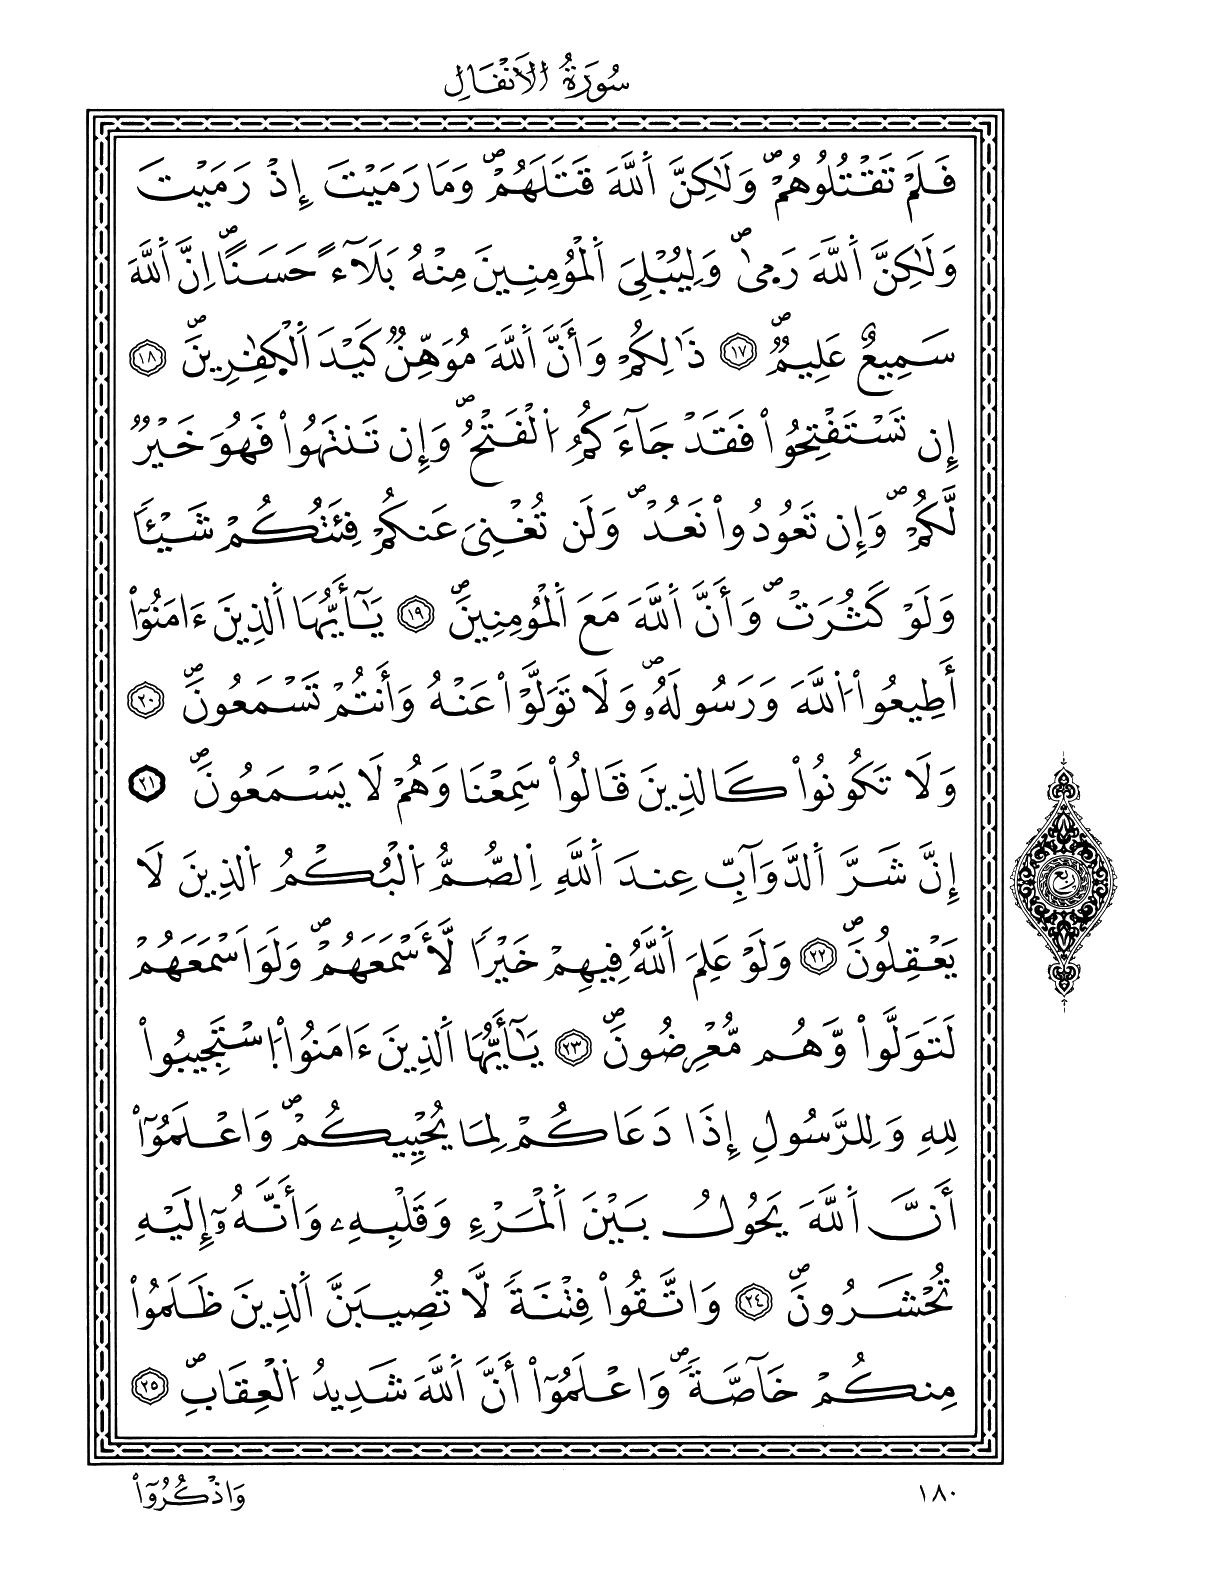 سُورَةُ الْأَنْفَالِ
فَلَمْ تَقْتُلُوهُمْۖ وَلَٰكِنَّ اَ۬للَّهَ قَتَلَهُمْۖ وَمَا رَمَيْتَ إِذْ رَمَيْتَ
وَلَٰكِنَّ اَ۬للَّهَ رَم۪ىٰۖ وَلِيُبْلِيَ اَ۬لْمُؤْمِنِينَ مِنْهُ بَلَآءً حَسَناًۖ اِنَّ اَ۬للَّهَ
سَمِيعٌ عَلِيمٞۖ ١٧ ذَٰلِكُمْ وَأَنَّ اَ۬للَّهَ مُوَهِّنٞ كَيْدَ اَ۬لْكٰ۪فِرِينَۖ ١٨
إِن تَسْتَفْتِحُواْ فَقَدْ جَآءَكُمُ اُ۬لْفَتْحُۖ وَإِن تَنتَهُواْ فَهُوَ خَيْرٞ
لَّكُمْۖ وَإِن تَعُودُواْ نَعُدْۖ وَلَن تُغْنِيَ عَنكُمْ فِئَتُكُمْ شَيْـٔاٗ
وَلَوْ كَثُرَتْۖ وَأَنَّ اَ۬للَّهَ مَعَ اَ۬لْمُؤْمِنِينَۖ ١٩ يَٰٓأَيُّهَا اَ۬لذِينَ ءَامَنُوٓاْ
أَطِيعُواْ اُ۬للَّهَ وَرَسُولَهُۥۖ وَلَا تَوَلَّوْاْ عَنْهُ وَأَنتُمْ تَسْمَعُونَۖ ٢٠
وَلَا تَكُونُواْ كَالذِينَ قَالُواْ سَمِعْنَا وَهُمْ لَا يَسْمَعُونَۖ ٢١
إِنَّ شَرَّ اَ۬لدَّوَآبِّ عِندَ اَ۬للَّهِ اِ۬لصُّمُّ اُ۬لْبُكْمُ اُ۬لذِينَ لَا
يَعْقِلُونَۖ ٢٢ وَلَوْ عَلِمَ اَ۬للَّهُ فِيهِمْ خَيْراٗ لَّأَسْمَعَهُمْۖ وَلَوَ اَسْمَعَهُمْ
لَتَوَلَّواْ وَّهُم مُّعْرِضُونَۖ ٢٣ يَٰٓأَيُّهَا اَ۬لذِينَ ءَامَنُواْ اُ۪سْتَجِيبُواْ
لِلهِ وَلِلرَّسُولِ إِذَا دَعَاكُمْ لِمَا يُحْيِيكُمْۖ وَاعْلَمُوٓاْ
أَنَّ اَ۬للَّهَ يَحُولُ بَيْنَ اَ۬لْمَرْءِ وَقَلْبِهِۦ وَأَنَّهُۥٓ إِلَيْهِ
تُحْشَرُونَۖ ٢٤ وَاتَّقُواْ فِتْنَةٗ لَّا تُصِيبَنَّ اَ۬لذِينَ ظَلَمُواْ
مِنكُمْ خَآصَّةٗۖ وَاعْلَمُوٓاْ أَنَّ اَ۬للَّهَ شَدِيدُ اُ۬لْعِقَابِۖ ٢٥
ربع
١٨٠
وَاذْكُرُوٓاْ